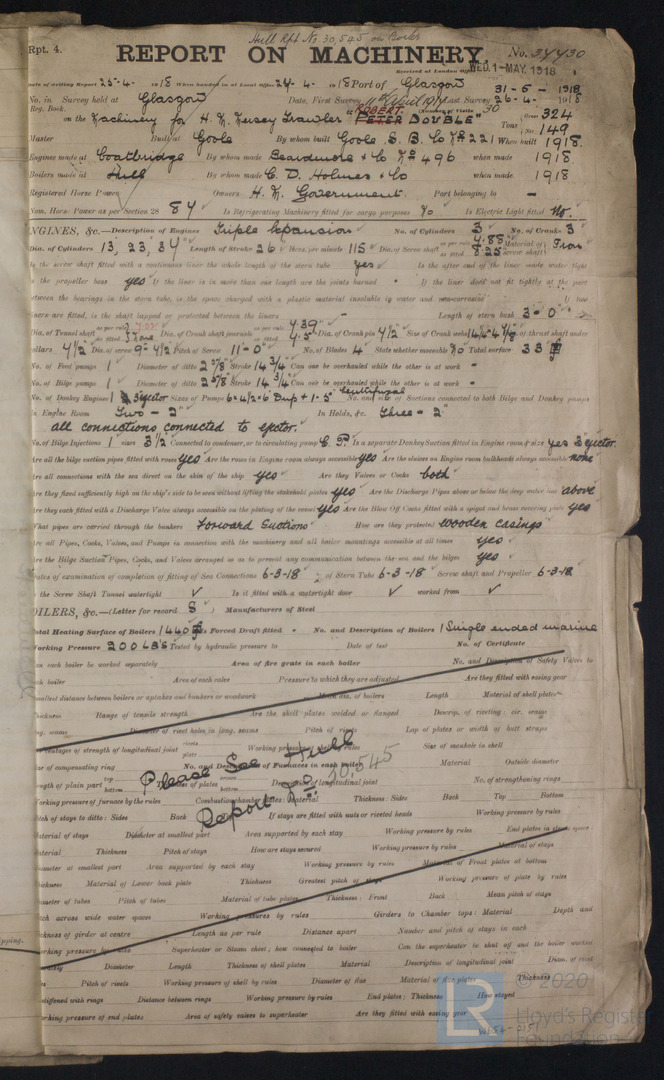 Hull Rpt No. 30,545 on Boiler
Rpt. 4.
REPORT ON MACHINERY.
No. 37430
Received at London Office WED. 1-MAY. 1918
Date of writing Report 25-4- 1918 When handed in at Local Office 24-4- 1918 Port of Glasgow
31-5-1918
No. in Survey held at Glasgow Date, First Survey Last Survey 26-4- 1918
Reg. Book. Number of Visits 30
on the Machinery for H. M. Mersey Trawler "PETER DOUBLE" ROBERT
Tons Gross 324
Net 149
Master Built at Goole By whom built Goole S. B. Co No 221 When built 1918.
Engines made at Coatbridge By whom made Beardmore & Co No 496 when made 1918
Boilers made at Hull By whom made C. D. Holmes & Co when made 1918
Registered Horse Power Owners H. M. Government. Port belonging to -
Nom. Horse Power as per Section 28 84 Is Refrigerating Machinery fitted for cargo purposes No Is Electric Light fitted No.
ENGINES, &c.—Description of Engines Triple Expansion No. of Cylinders 3 No. of Cranks 3
Dia. of Cylinders 13, 23, 37 Length of Stroke 26 Revs. per minute 115 Dia. of Screw shaft as per rule 7.88 as fitted Material of screw shaft Iron
Is the screw shaft fitted with a continuous liner the whole length of the stern tube yes Is the after end of the liner made water tight
in the propeller boss yes If the liner is in more than one length are the joints burned If the liner does not fit tightly at the part
between the bearings in the stern tube, is the space charged with a plastic material insoluble in water and non-corrosive If two
liners are fitted, is the shaft lapped or protected between the liners Length of stern bush 3-0"
Dia. of Tunnel shaft as per rule as fitted None Dia. of Crank shaft journals as per rule 7.39 as fitted 7.5 Dia. of Crank pin 7 1/2 Size of Crank webs Dia. of thrust shaft under
collars 7 1/2 Dia. of screw 9-4 1/2 Pitch of Screw 11-0" No. of Blades 4 State whether moveable No Total surface 33
No. of Feed pumps 1 Diameter of ditto 2 3/8 Stroke 14 3/4 Can one be overhauled while the other is at work -
No. of Bilge pumps 1 Diameter of ditto 2 3/8 Stroke 14 3/4 Can one be overhauled while the other is at work -
No. of Donkey Engines 1 & Ejector Sizes of Pumps 6 x 4 1/2 x 6 Dup + 1-5" Centrifugal No. and size of Suctions connected to both Bilge and Donkey pumps
In Engine Room Two - 2" In Holds, &c. Three - 2"
all connections connected to ejector.
No. of Bilge Injections 1 sizes 3 1/2 Connected to condenser, or to circulating pump C. P. Is a separate Donkey Suction fitted in Engine room & size yes 3 ejector.
Are all the bilge suction pipes fitted with roses yes Are the roses in Engine room always accessible yes Are the sluices on Engine room bulkheads always accessible none
Are all connections with the sea direct on the skin of the ship yes Are they Valves or Cocks both
Are they fixed sufficiently high on the ship's side to be seen without lifting the stokehold plates yes Are the Discharge Pipes above or below the deep water line above
Are they each fitted with a Discharge Valve always accessible on the plating of the vessel yes Are the Blow Off Cocks fitted with a spigot and brass covering plate yes
What pipes are carried through the bunkers Forward Suctions How are they protected Wooden casings
Are all Pipes, Cocks, Valves, and Pumps in connection with the machinery and all boiler mountings accessible at all times yes
Are the Bilge Suction Pipes, Cocks, and Valves arranged so as to prevent any communication between the sea and the bilges yes
Dates of examination of completion of fitting of Sea Connections 6-3-18 of Stern Tube 6-3-18 Screw shaft and Propeller 6-3-18
Is the Screw Shaft Tunnel watertight Is it fitted with a watertight door worked from
BOILERS, &c.—(Letter for record S) Manufacturers of Steel
Total Heating Surface of Boilers 1440 Is Forced Draft fitted No. and Description of Boilers 1 Single ended marine
Working Pressure 200 LBS Tested by hydraulic pressure to Date of test No. of Certificate
Can each boiler be worked separately Area of fire grate in each boiler No. and Description of Safety Valves to
each boiler Area of each valve Pressure to which they are adjusted Are they fitted with easing gear
Smallest distance between boilers or uptakes and bunkers or woodwork Mean dia. of boilers Length Material of shell plates
Thickness Range of tensile strength Are the shell plates welded or flanged Descrip. of riveting: cir. seams
long. seams Diameter of rivet holes in long. seams Pitch of rivets Lap of plates or width of butt straps
Percentages of strength of longitudinal joint rivets plate Working pressure of shell by rules Size of manhole in shell
Size of compensating ring No. and Description of Furnaces in each boiler Material Outside diameter
Length of plain part top bottom Thickness of plates crown bottom Description of longitudinal joint No. of strengthening rings
Working pressure of furnace by the rules Combustion chamber plates: Material Thickness: Sides Back Top Bottom
Pitch of stays to ditto: Sides Back If stays are fitted with nuts or riveted heads Working pressure by rules
Material of stays Diameter at smallest part Area supported by each stay Working pressure by rules End plates in steam space:
Material Thickness Pitch of stays How are stays secured Working pressure by rules Material of stays
Diameter at smallest part Area supported by each stay Working pressure by rules Material of Front plates at bottom
Thickness Material of Lower back plate Thickness Greatest pitch of stays Working pressure of plate by rules
Diameter of tubes Pitch of tubes Material of tube plates Thickness: Front Back Mean pitch of stays
Pitch across wide water spaces Working pressures by rules Girders to Chamber tops: Material Depth and
thickness of girder at centre Length as per rule Distance apart Number and pitch of stays in each
Working pressure by rules Superheater or Steam chest; how connected to boiler Can the superheater be shut off and the boiler worked
separately Diameter Length Thickness of shell plates Material Description of longitudinal joint Diam. of rivet
holes Pitch of rivets Working pressure of shell by rules Diameter of flue Material of flue plates Thickness
If stiffened with rings Distance between rings Working pressure by rules End plates: Thickness How stayed
Working pressure of end plates Area of safety valves to superheater Are they fitted with easing gear
Please See Hull
Report No 30,545
© 2020
Lloyd's Register
Foundation